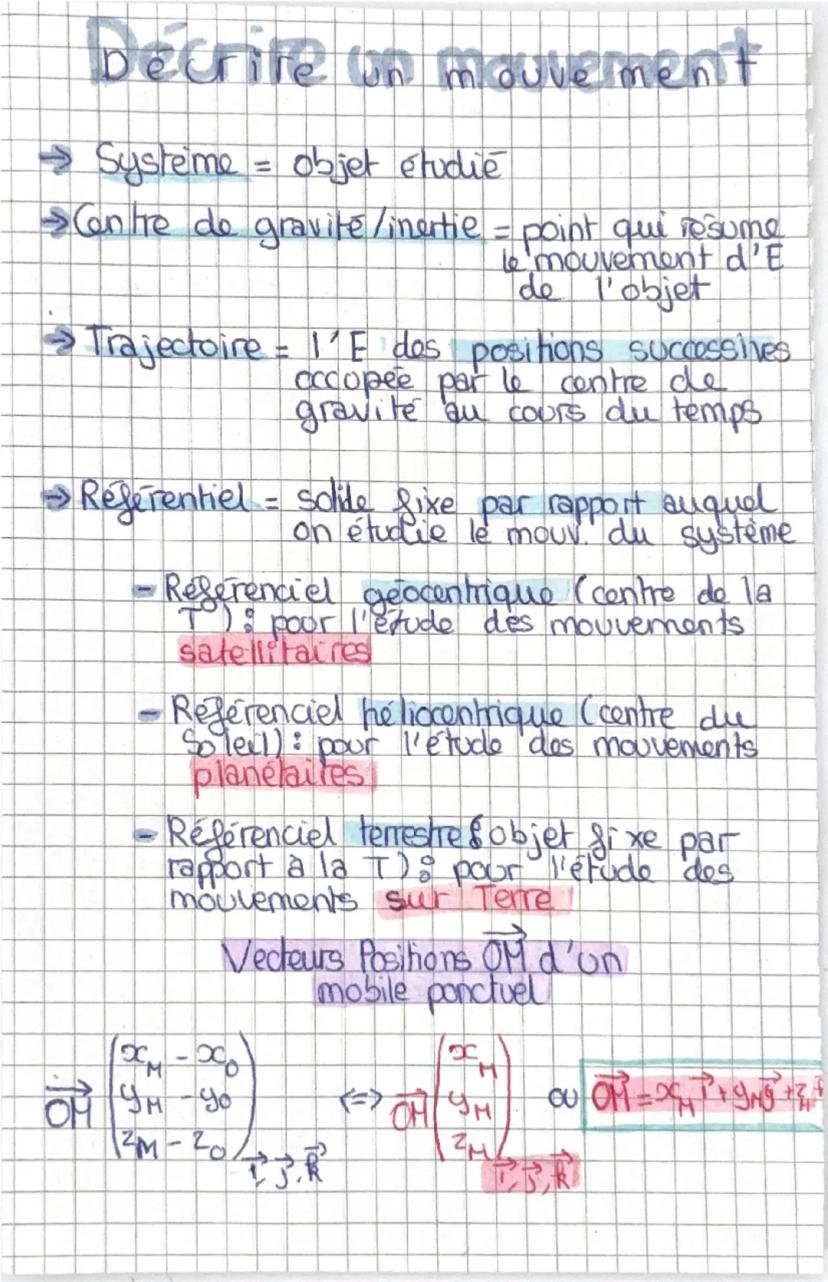 Décrire un mouvement
→ Système = objet étudié
→ Centre de gravité/inertie = point qui résume
le mouvement d'E
de l'objet
→ Trajectoire = l'E des positions successives
occopée par le centre de
gravité au cours du temps
→ Référentiel = solide fixe par rapport auquel
on étudie le mouv. du système
- Référenciel géocentrique (centre de la
T) : pour l'étude des mouvements
satellitaires
- Référenciel héliocentrique (centre du
Soleil) : pour l'étude des mouvements
planétaires
- Référenciel terrestre (objet fixe par
rapport à la T) : pour l'étude des
mouvements sur Terre
Vecteurs Positions \overrightarrow{OM} d'un
mobile ponctuel
\overrightarrow{OM} \begin{pmatrix} x_M - x_O \\ y_M - y_O \\ z_M - z_O \end{pmatrix}_{\vec{i}, \vec{j}, \vec{k}} <=> \overrightarrow{OM} \begin{pmatrix} x_M \\ y_M \\ z_M \end{pmatrix}_{\vec{i}, \vec{j}, \vec{k}} ou \overrightarrow{OM} = x_M \vec{i} + y_M \vec{j} + z_M